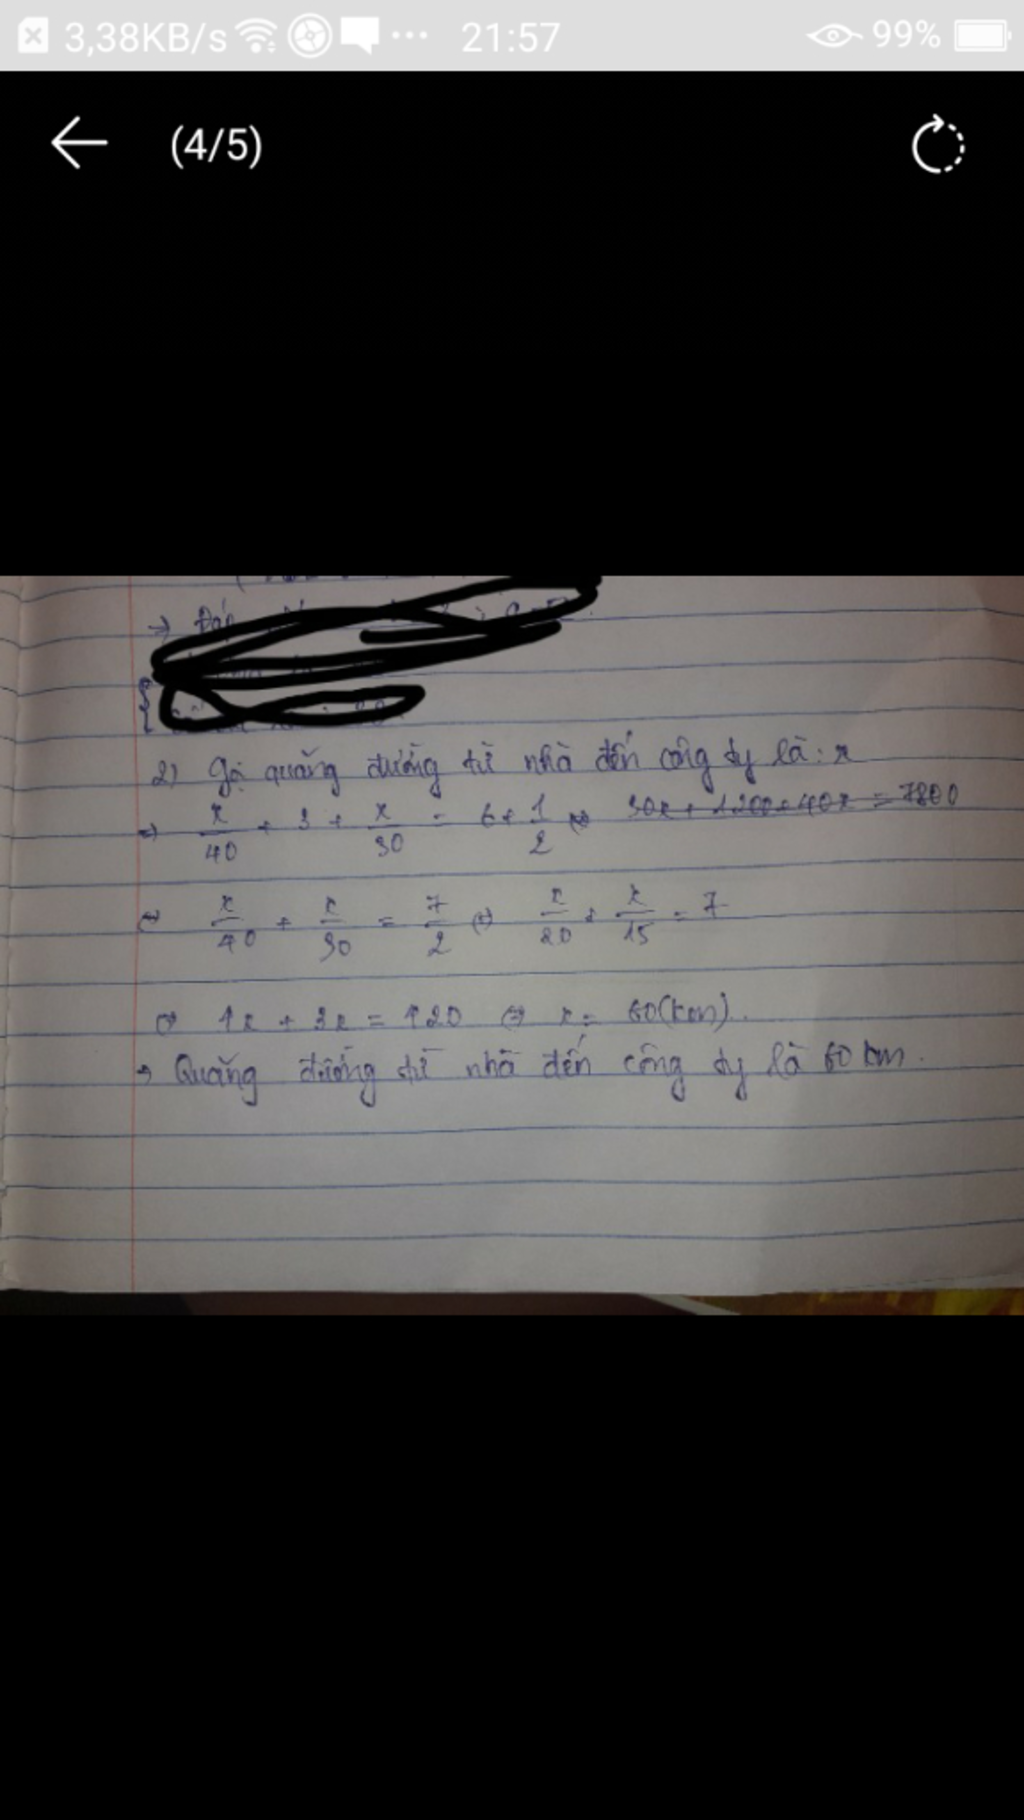 3,38KB/s ... 21:57 99%
(4/5)
2) Gọi quãng đường từ nhà đến công ty là: x
=> x/40 + 3 + x/30 = 6 + 1/2 <=> 30x + 1200 + 40x = 7800
<=> x/40 + x/30 = 7/2 <=> x/20 + x/15 = 7
<=> 4x + 3x = 420 <=> x = 60(km).
→ Quãng đường từ nhà đến công ty là 60 km.